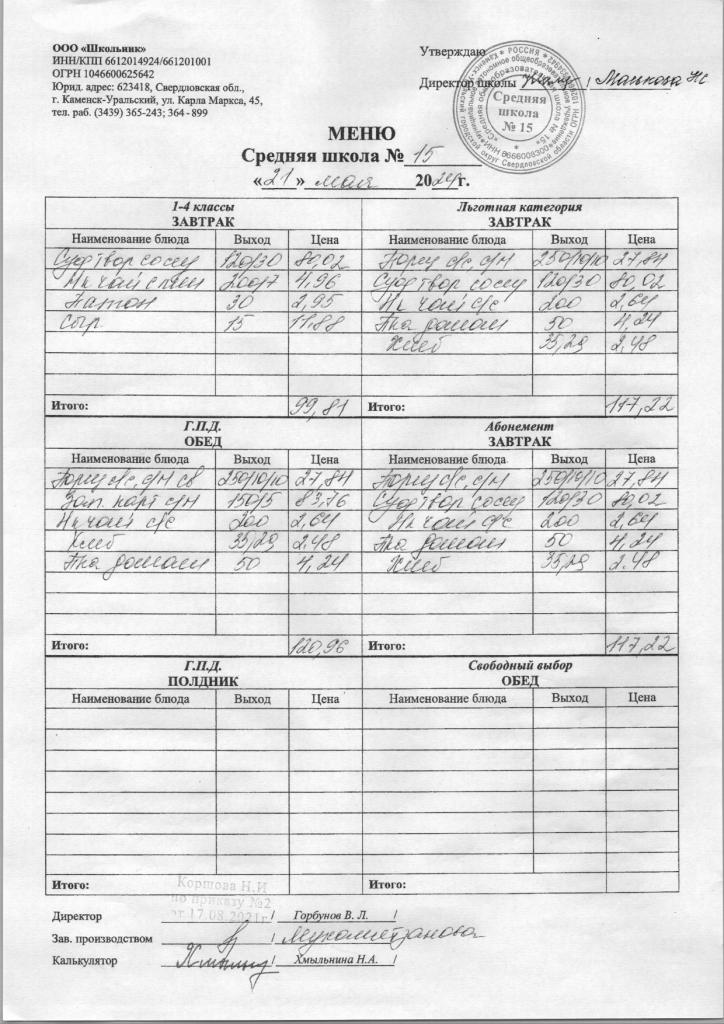 ООО «Школьник»
ИНН/КПП 6612014924/661201001
ОГРН 1046600625642
Юрид. адрес: 623418, Свердловская обл.,
г. Каменск-Уральский, ул. Карла Маркса, 45,
тел. раб. (3439) 365-243; 364 - 899
Утверждаю
Директор школы / Манькова Н С
РОССИЯ
Средняя
школа
№ 15
МЕНЮ
Средняя школа № 15
«21» мая 2024г.
1-4 классы
ЗАВТРАК
Наименование блюда Выход Цена
Суф твор сосиц 120/30 80,02
200/7 4,96
Батон 30 2,95
Сыр 15 11,88
Итого: 99,81
Льготная категория
ЗАВТРАК
Наименование блюда Выход Цена
Борщ с/с, с/м 250/10/10 27,84
Суф твор сосиц 120/30 80,02
чай с/с 200 2,64
50 4,24
Хлеб 35,29 2,48
Итого: 117,22
Г.П.Д.
ОБЕД
Наименование блюда Выход Цена
Борщ с/с, с/м св 250/10/10 27,84
Зап. карт с/м 150/5 83,76
чай с/с 200 2,64
Хлеб 35,29 2,48
50 4,24
Итого: 120,96
Абонемент
ЗАВТРАК
Наименование блюда Выход Цена
Борщ с/с, с/м 250/10/10 27,84
Суф твор сосиц 120/30 80,02
чай с/с 200 2,64
50 4,24
Хлеб 35,29 2,48
Итого: 117,22
Г.П.Д.
ПОЛДНИК
Наименование блюда Выход Цена
Итого:
Свободный выбор
ОБЕД
Наименование блюда Выход Цена
Итого:
Коршова Н.И
по приказу №2
от 17.08.2021г
Директор / Горбунов В. Л. /
Зав. производством / Мухаметзанова
Калькулятор / Хмыльнина Н.А. /